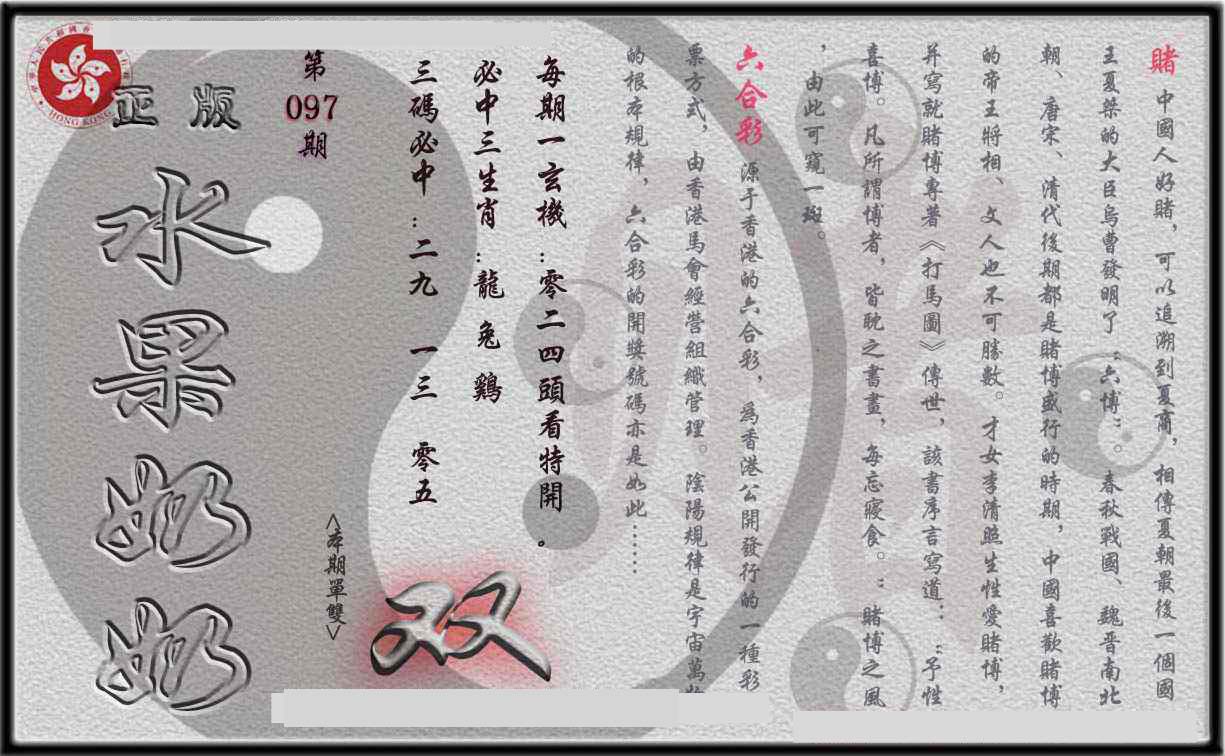 賭 中國人好賭，可以追溯到夏商，相傳夏朝最後一個國
王夏桀的大臣烏曹發明了“六博”。春秋戰國、魏晋南北
朝、唐宋、清代後期都是賭博盛行的時期，中國喜歡賭博
的帝王將相、文人也不可勝數。才女李清照生性愛賭博，
并寫就賭博專著《打馬圖》傳世，該書序言寫道：“予性
喜博。凡所謂博者，皆耽之書畫，每忘寢食。”賭博之風
，由此可窺一斑。
六合彩 源于香港的六合彩，爲香港公開發行的一種彩
票方式，由香港馬會經營組織管理。陰陽規律是宇宙萬物
的根本規律，六合彩的開獎號碼亦是如此……
每期一玄機：零二四頭看特開。
必中三生肖：龍 兔 鷄
三碼必中：二九 一三 零五
<本期單雙>
双
第
097
期
正版
水果奶奶
HONG KONG